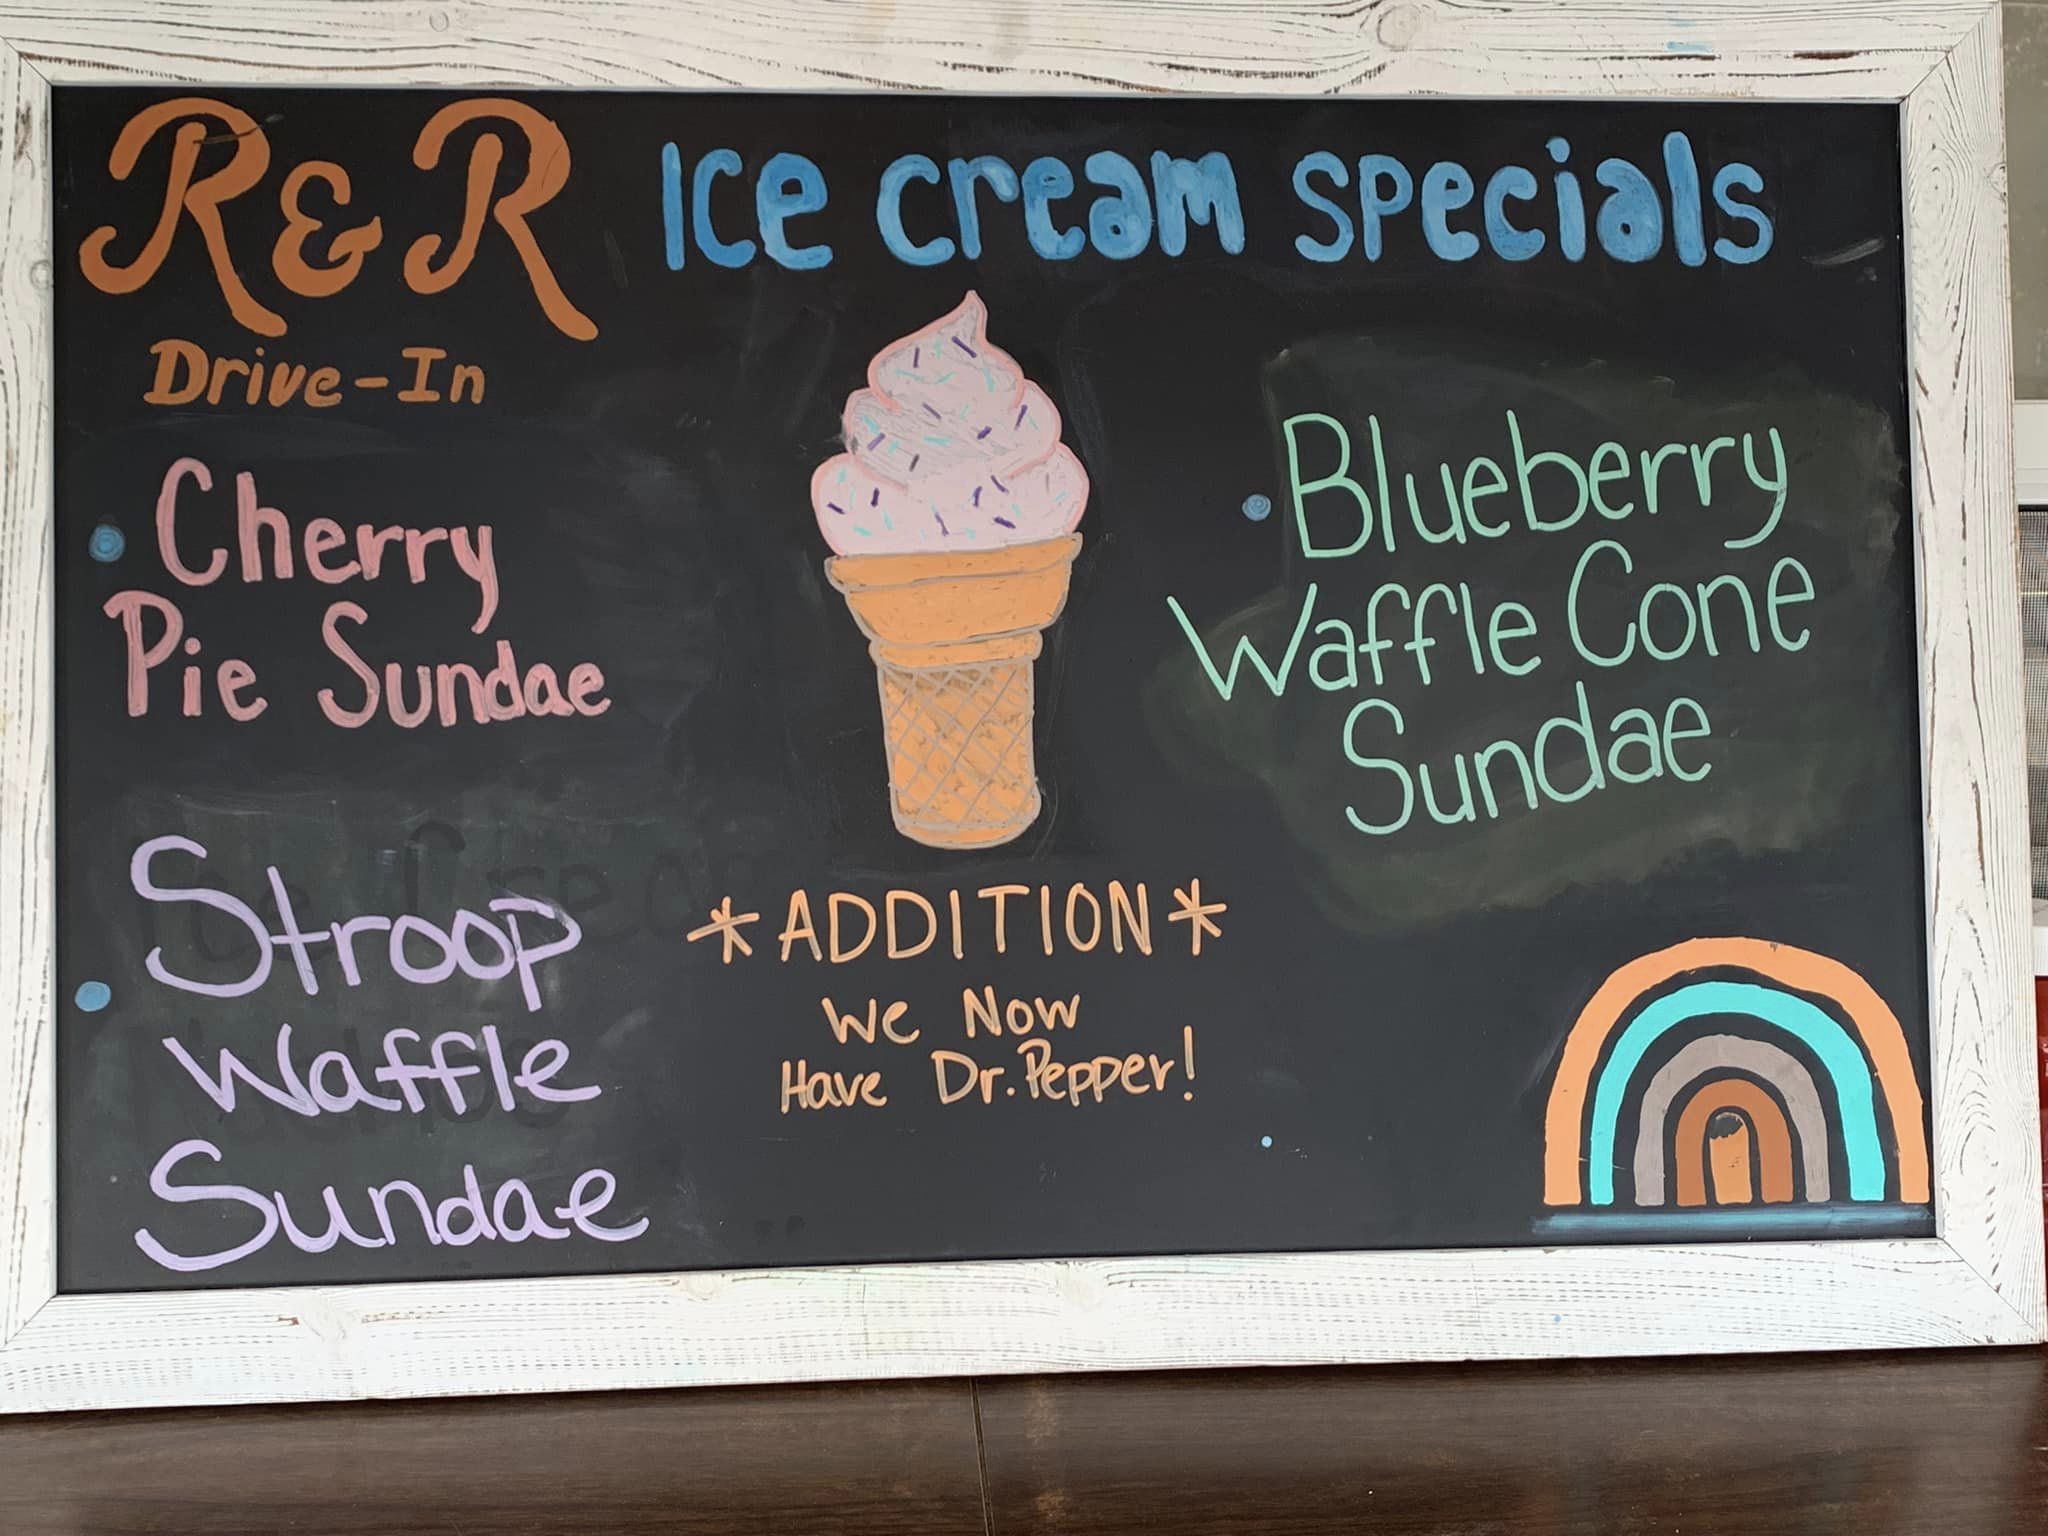 R&R Ice cream specials
Drive-In
• Cherry
Pie Sundae
• Stroop
Waffle
Sundae
• Blueberry
Waffle Cone
Sundae
*ADDITION*
We Now
Have Dr. Pepper!